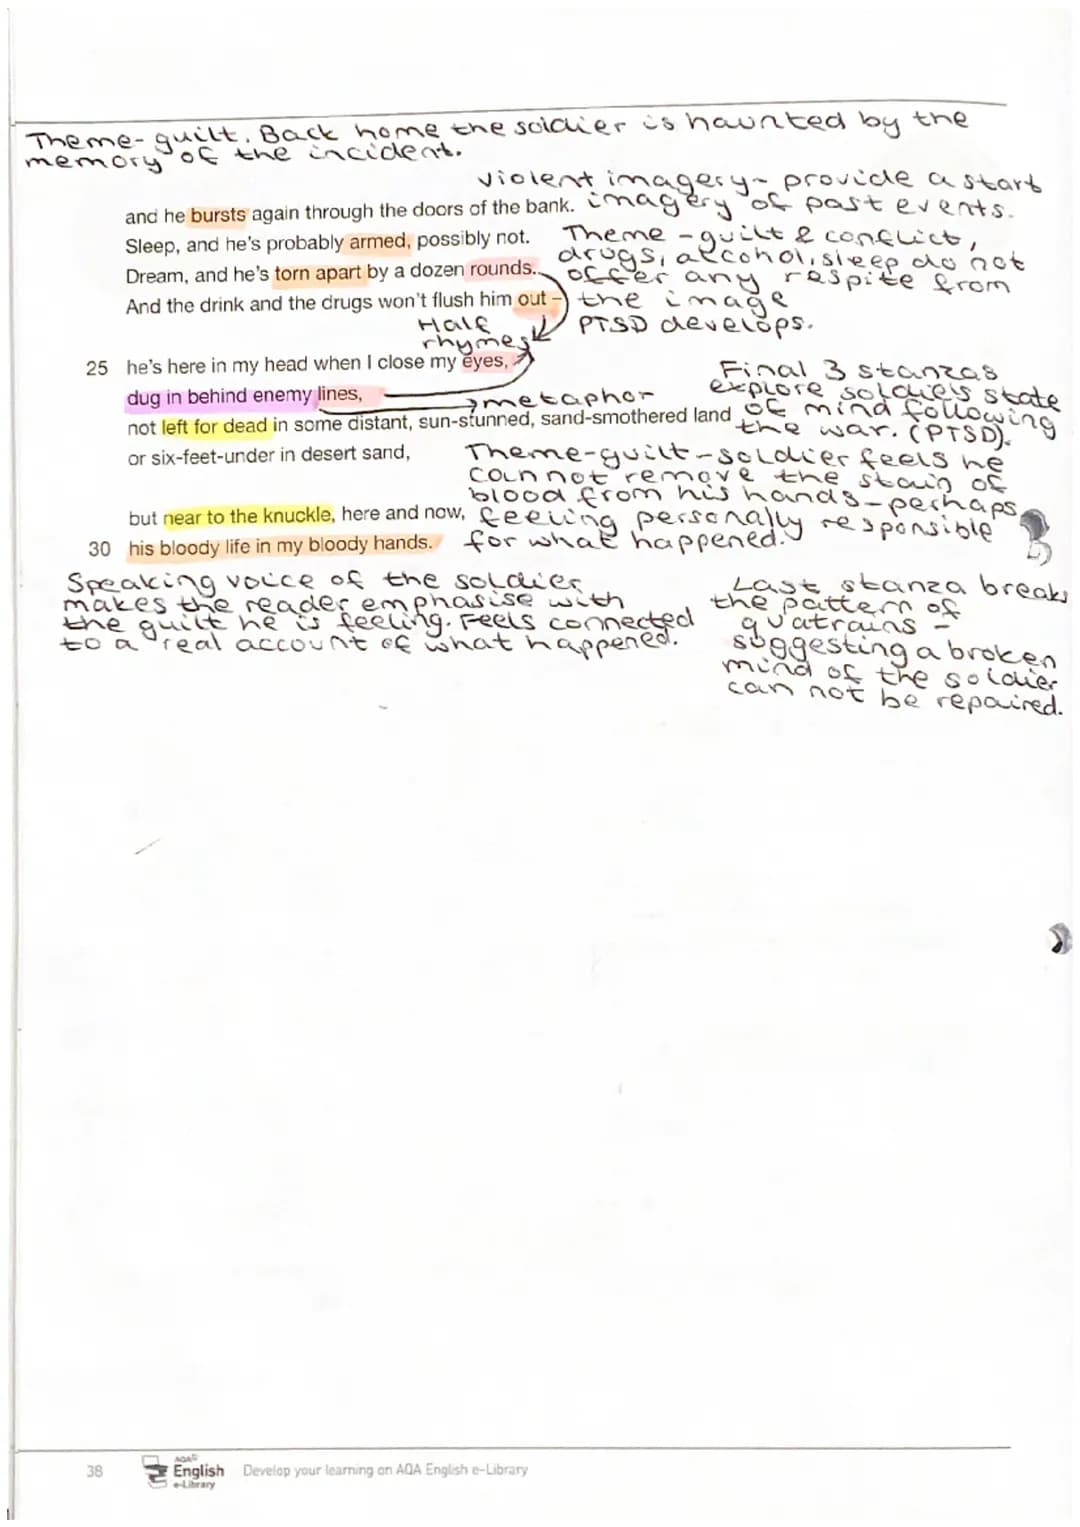 Theme- guilt. Back home the soldier is haunted by the
memory of the incident.
violent imagery- provide a start
and he bursts again through the doors of the bank. imagery of past events.
Sleep, and he's probably armed, possibly not.
Dream, and he's torn apart by a dozen rounds.
And the drink and the drugs won't flush him out –
Theme - guilt & conflict,
drugs, alcohol, sleep do not
offer any respite from
the image
PTSD develops.
Half
rhymes
25 he's here in my head when I close my eyes,
dug in behind enemy lines,
metaphor
not left for dead in some distant, sun-stunned, sand-smothered land
or six-feet-under in desert sand,
Final 3 stanzas
explore soldiers state
of mind following
the war. (PTSD).
Theme-guilt-soldier feels he
cannot remove the stain of
blood from his hands-perhaps
feeling personally responsible
for what happened.
but near to the knuckle, here and now,
30 his bloody life in my bloody hands.
Speaking voice of the soldier
makes the reader emphasise with
the guilt he is feeling. Feels connected
to a real account of what happened.
Last stanza breaks
the pattern of
quatrains -
suggesting a broken
mind of the soldier
can not be repaired.
38
AQA
English
e-Library
Develop your learning on AQA English e-Library